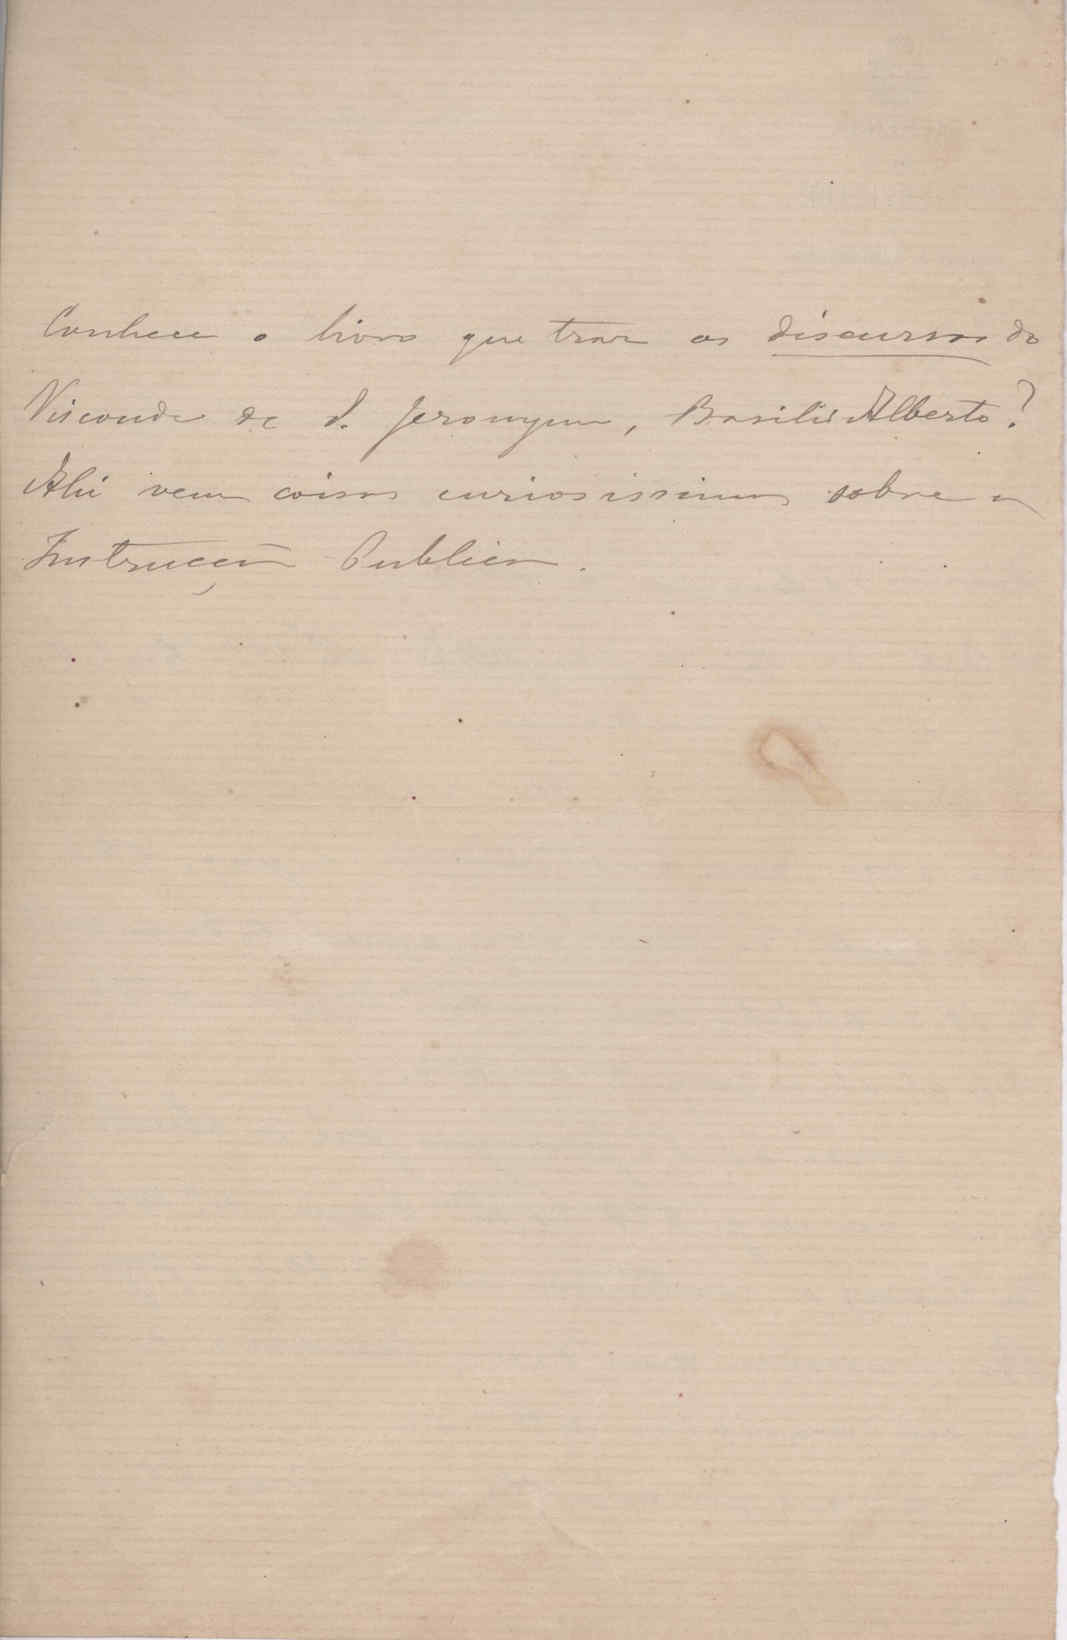 Conhece o livro que traz os discursos do
Visconde de S. Jeronymo, Basilio Alberto?
Ahi vem coisas curiosissimas sobre a
Instrucção Publica.